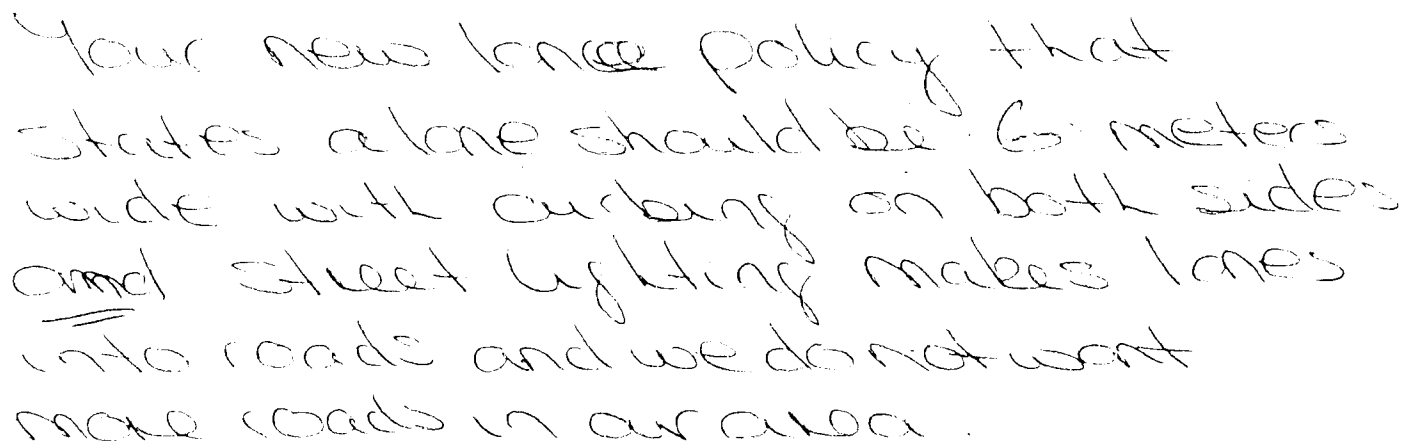 Your new lane policy that
states a lane should be 6 meters
wide with curbing on both sides
and street lighting makes lanes
into roads and we do not want
more roads in our area.